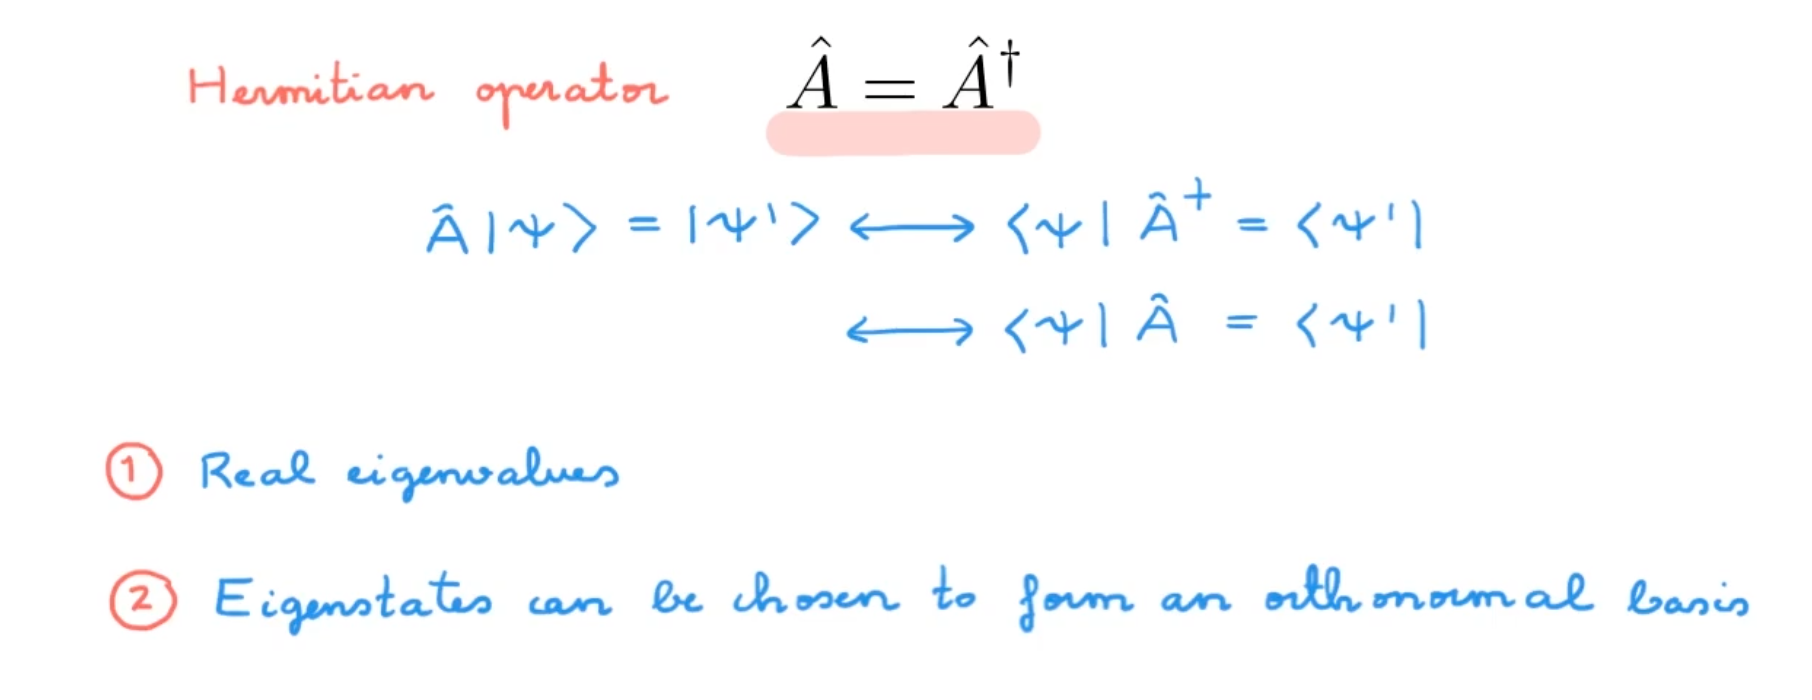 Hermitian operator Â = Â†
Â |Ψ⟩ = |Ψ'⟩ ⟷ ⟨Ψ| Â† = ⟨Ψ'|
⟷ ⟨Ψ| Â = ⟨Ψ'|
① Real eigenvalues
② Eigenstates can be chosen to form an orthonormal basis